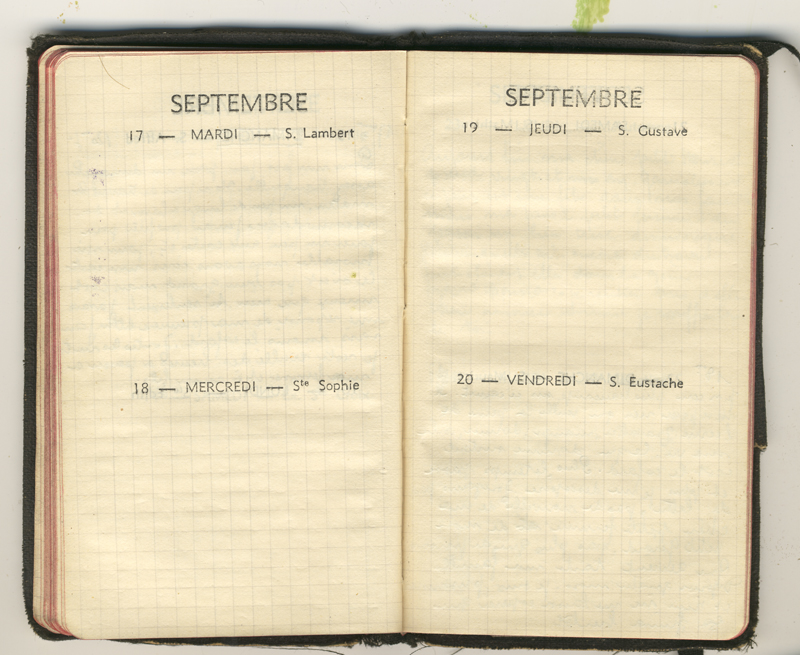 SEPTEMBRE
17 — MARDI — S. Lambert
18 — MERCREDI — Sᵗᵉ Sophie
SEPTEMBRE
19 — JEUDI — S. Gustave
20 — VENDREDI — S. Eustache